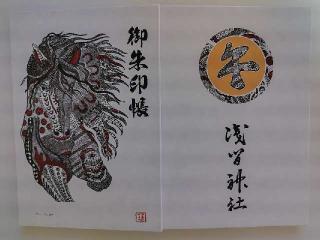 御朱印帳
午
浅間神社